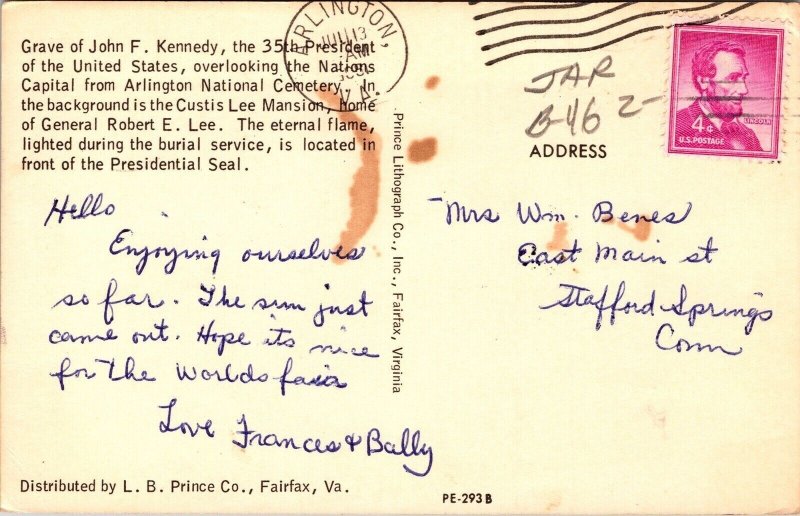 Grave of John F. Kennedy, the 35th President
of the United States, overlooking the Nations
Capital from Arlington National Cemetery. In
the background is the Custis Lee Mansion, home
of General Robert E. Lee. The eternal flame,
lighted during the burial service, is located in
front of the Presidential Seal.
ARLINGTON,
JUL 13
AM
VA.
JAR
B-46 2-
4¢
LINCOLN
U.S. POSTAGE
ADDRESS
Hello
Enjoying ourselves
so far. The sun just
came out. Hope its nice
for the Worlds fair
Love Frances & Bally
Prince Lithograph Co., Inc., Fairfax, Virginia
Mrs Wm. Benes
East Main st
Stafford Springs
Conn
Distributed by L. B. Prince Co., Fairfax, Va.
PE-293B